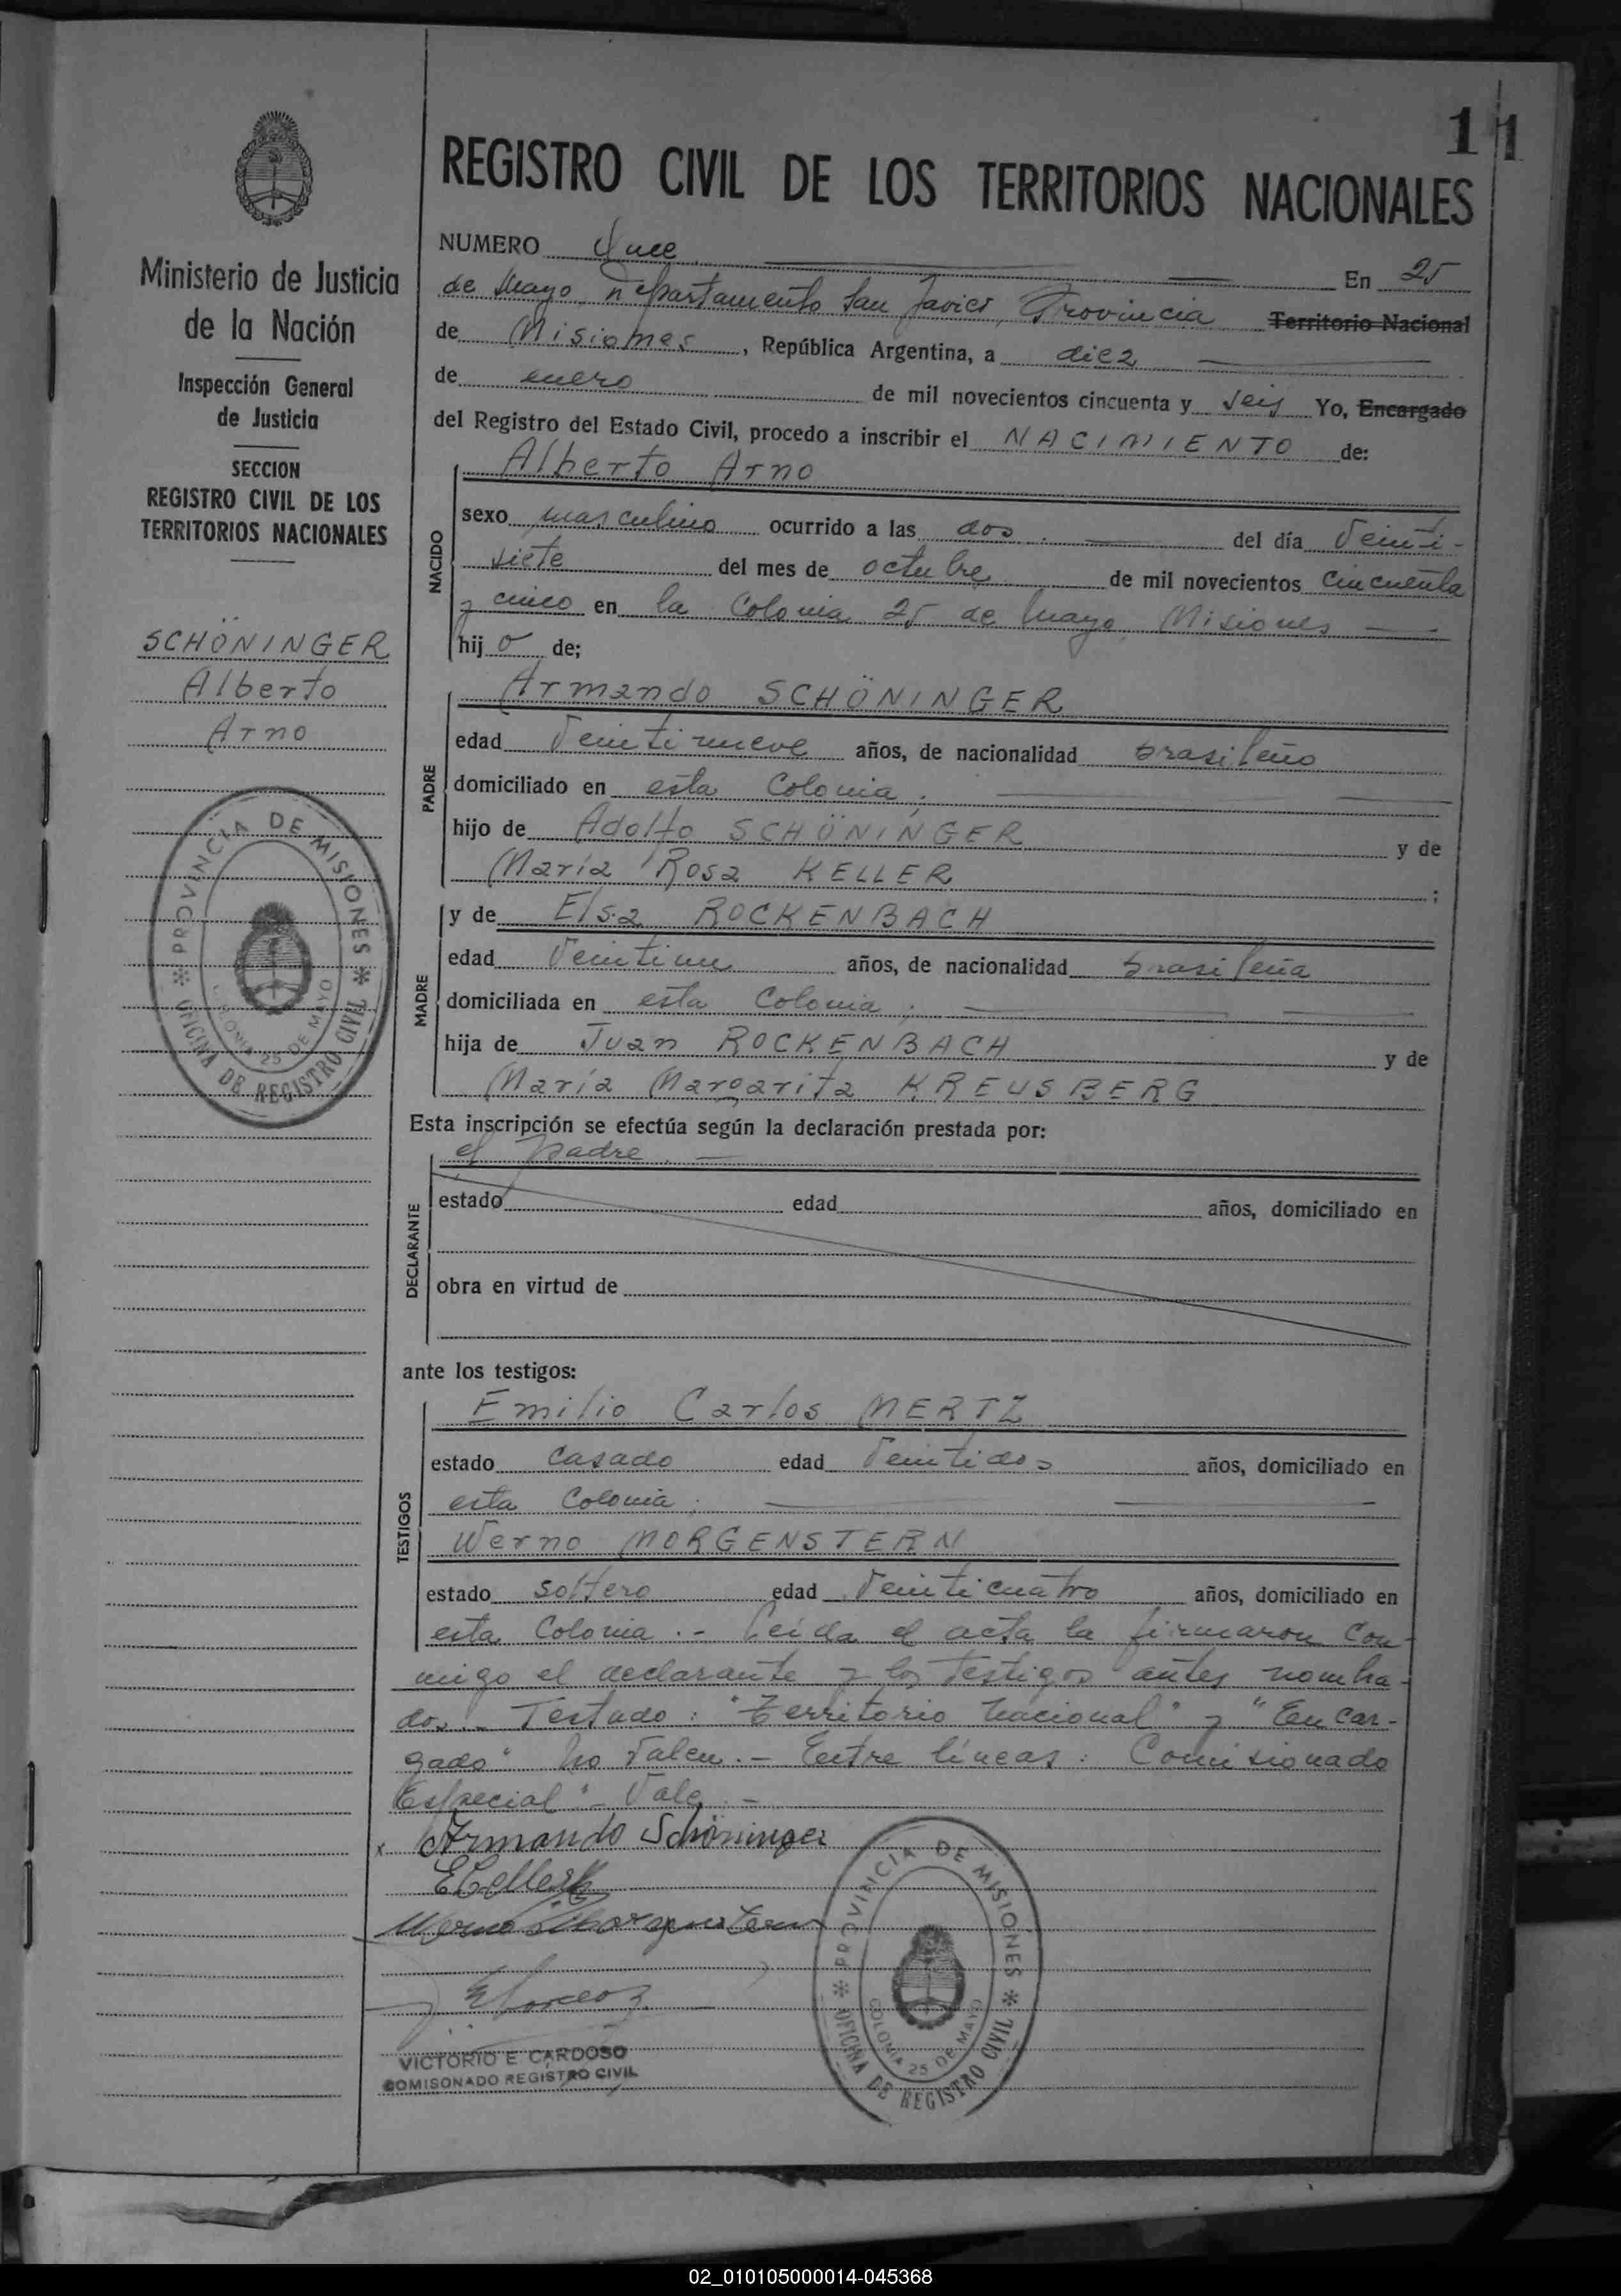 11
REGISTRO CIVIL DE LOS TERRITORIOS NACIONALES
Ministerio de Justicia
de la Nación
Inspección General
de Justicia
SECCION
REGISTRO CIVIL DE LOS
TERRITORIOS NACIONALES
SCHÖNINGER
Alberto
Arno
PROVINCIA DE MISIONES
COLONIA 25 DE MAYO
OFICINA DE REGISTRO CIVIL
NUMERO Once En 25
de Mayo, Departamento San Javier, Provincia Territorio Nacional
de Misiones, República Argentina, a diez
de enero de mil novecientos cincuenta y seis Yo, Encargado
del Registro del Estado Civil, procedo a inscribir el NACIMIENTO de:
NACIDO
Alberto Arno
sexo masculino ocurrido a las dos. del día Veinti-
siete del mes de octubre de mil novecientos cincuenta
y cinco en la Colonia 25 de Mayo, Misiones
hijo de;
PADRE
Armando SCHÖNINGER
edad Veintinueve años, de nacionalidad brasileño
domiciliado en esta Colonia;
hijo de Adolfo SCHÖNINGER y de
María Rosa KELLER ;
MADRE
y de Elsa ROCKENBACH
edad Veintiun años, de nacionalidad brasileña
domiciliada en esta Colonia;
hija de Juan ROCKENBACH y de
María Margarita KREUSBERG
Esta inscripción se efectúa según la declaración prestada por:
DECLARANTE
el padre.
estado edad años, domiciliado en
obra en virtud de
ante los testigos:
TESTIGOS
Emilio Carlos MERTZ
estado casado edad Veintidos años, domiciliado en
esta Colonia.
Werno MORGENSTERN
estado soltero edad Veinticuatro años, domiciliado en
esta Colonia.- Leída el acta la firmaron con-
migo el declarante y los testigos antes nombra-
dos.- Testado: "Territorio Nacional" y "Encar-
gado" No Valen.- Entre líneas: Comisionado
Especial"- Vale.-
x Armando Schöninger
Werno Morgenstern
VICTORIO E CARDOSO
COMISONADO REGISTRO CIVIL
PROVINCIA DE MISIONES
COLONIA 25 DE MAYO
OFICINA DE REGISTRO CIVIL
02_010105000014-045368